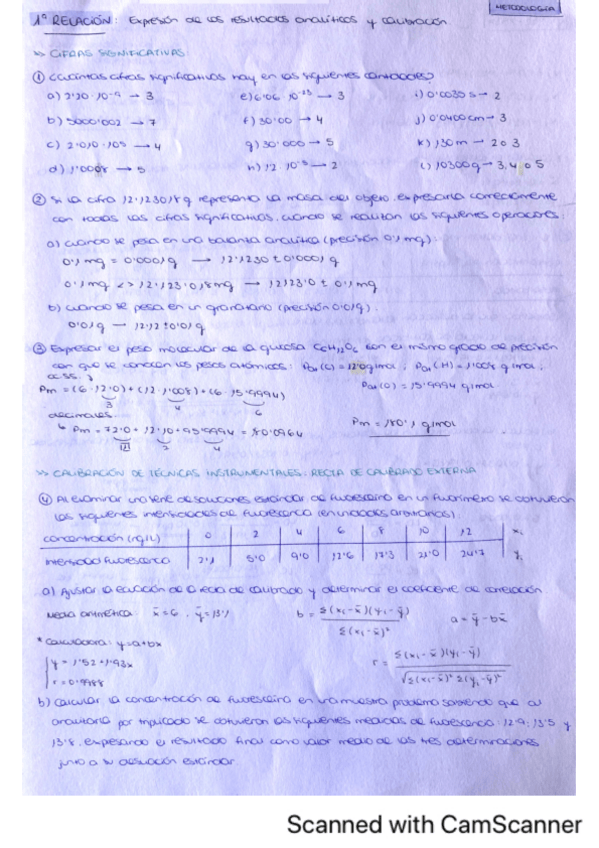 METODOLOGÍA
1ª RELACIÓN: Expresión de los resultados analíticos y calibración
>> CIFRAS SIGNIFICATIVAS
① ¿Cuántas cifras significativas hay en las siguientes cantidades?
a) 2'20·10⁻⁹ → 3 e) 6'06·10⁻²³ → 3 i) 0'0030 s → 2
b) 5000'002 → 7 f) 30'00 → 4 j) 0'0400 cm → 3
c) 2'010·10⁵ → 4 g) 30'000 → 5 k) 130 m → 2 o 3
d) 1'0008 → 5 h) 12·10⁻⁵ → 2 l) 10300 g → 3, 4 o 5
② Si la cifra 12'123018 g representa la masa del objeto, expresarla correctamente
con todas las cifras significativas, cuando se realizan las siguientes operaciones:
a) cuando se pesa en una balanza analítica (precisión 0'1 mg)
0'1 mg = 0'0001 g → 12'1230 ± 0'0001 g
0'1 mg <> 12'123'018 mg → 12123'0 ± 0'1 mg
b) cuando se pesa en un granatario (precisión 0'01 g):
0'01 g → 12'12 ± 0'01 g
③ Expresar el peso molecular de la glucosa C₆H₁₂O₆ con el mismo grado de precisión
con que se conocen los pesos atómicos: Pat (C) = 12'0 g/mol, Pat (H) = 1'008 g/mol,
Pat (O) = 15'9994 g/mol
Pm = (6·12'0) + (12·1'008) + (6·15'9994)
3 4 6
decimales
Pm = 72'0 + 12'10 + 95'9964 = 180'0964
1 2 4
Pm = 180'1 g/mol
>> CALIBRACIÓN DE TÉCNICAS INSTRUMENTALES: RECTA DE CALIBRADO EXTERNA
④ Al examinar una serie de soluciones estándar de fluoresceína en un fluorímetro se obtuvieron
las siguientes intensidades de fluorescencia (en unidades arbitrarias):
concentración 0 2 4 6 8 10 12 xᵢ
intensidad fluorescencia 2'1 5'0 9'0 12'6 17'3 21'0 24'7 yᵢ
a) Ajustar la ecuación de la recta de calibrado y determinar el coeficiente de correlación
Media aritmética: x̄ = 6, ȳ = 13'1 b = Σ(xᵢ-x̄)(yᵢ-ȳ) / Σ(xᵢ-x̄)² a = ȳ - bx̄
* Calculadora: y = a+bx
y = 1'52 + 1'93x
r = 0'9988
r = Σ(xᵢ-x̄)(yᵢ-ȳ) / √Σ(xᵢ-x̄)² Σ(yᵢ-ȳ)²
b) Calcular la concentración de fluoresceína en una muestra problema sabiendo que al
analizarla por triplicado se obtuvieron las siguientes medidas de fluorescencia: 12'9; 13'5 y
13'8, expresando el resultado final como valor medio de las tres determinaciones
junto a su desviación estándar.
Scanned with CamScanner